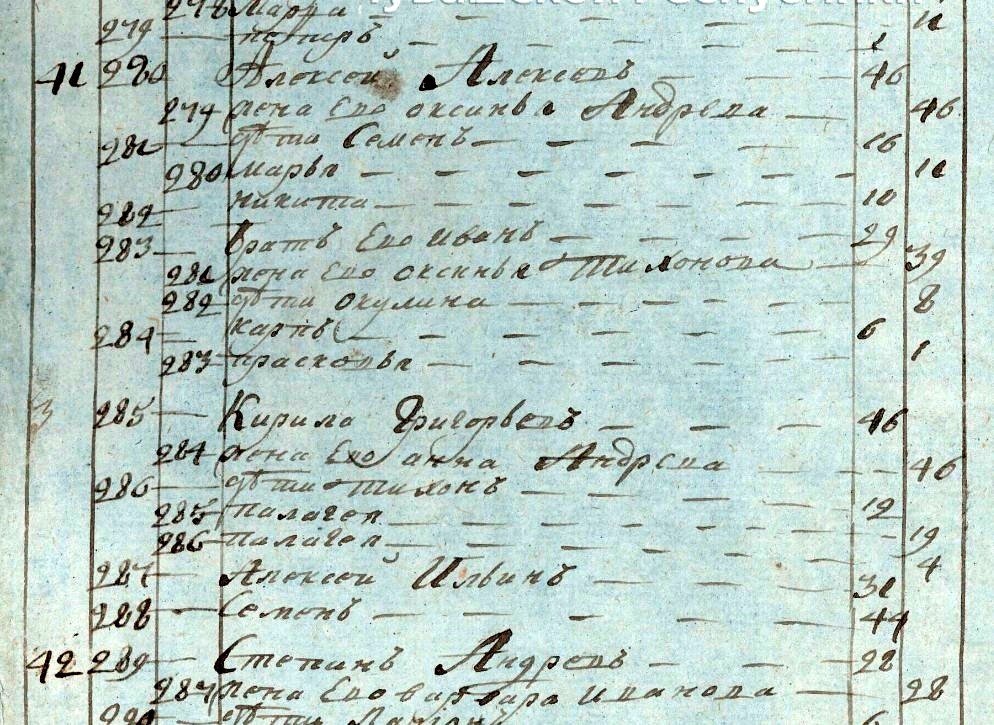 278 Марфа — 11
279 — петръ — 1
41 280 Алексей Алексеевъ — 46
279 жена Ево оксинья Андреева — 46
281 — дѣти Семенъ — 16
280 марья — 11
282 — никита — 10
283 — братъ Ево иванъ — 29
281 жена Ево оксинья Тихонова — 39
282 дѣти окулина — 8
284 — карпъ — 6
283 прасковья — 1
285 — Кирила Григорьевъ — 46
284 жена Ево анна Андреева — 46
286 — дѣти тихонъ — 12
285 палагея — 19
286 палагея — 4
287 — Алексей Ильинъ — 31
288 — Семенъ — 44
42 289 — Степанъ Андреевъ — 28
287 жена Ево варвара иванова — 28
290 дѣти — 6